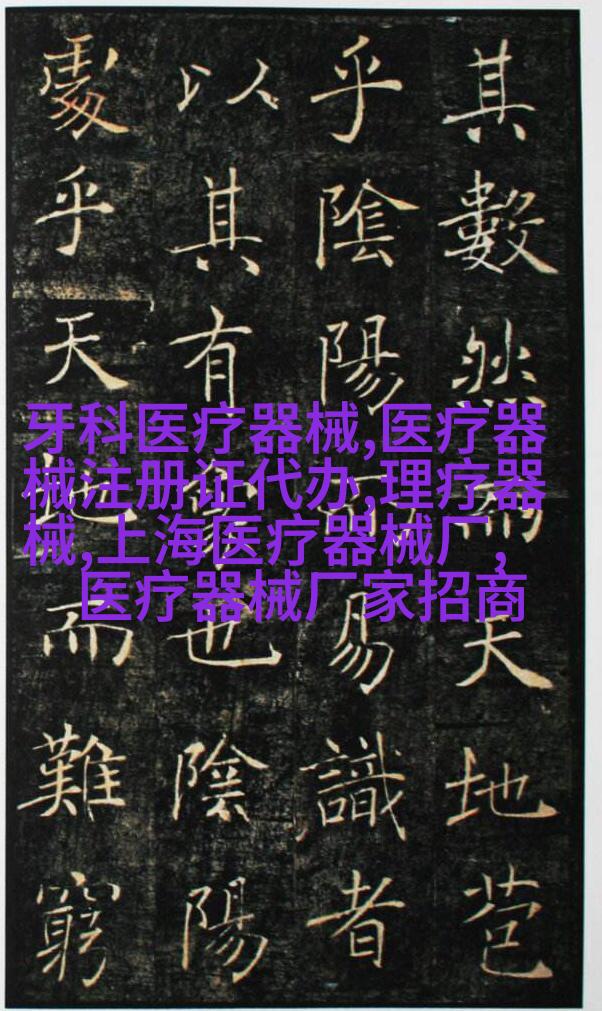 其數然而天地苞
乎陰陽而易識者
以其有象也陰陽
處乎天地而難窮
牙科医疗器械,医疗器
械注册证代办,理疗器
械,上海医疗器械厂,
医疗器械厂家招商